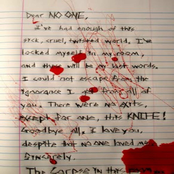 Dear NO ONE,
I've had enough of this
sick, cruel, twisted world. I've
locked myself in my room,
and these will be my last words.
I could not escape from the
ignorance I from all of
you. There were no exits,
except for one, this KNIFE!
Goodbye all, I love you,
despite that no one loved me.
Sincerely,
The Corpse in these